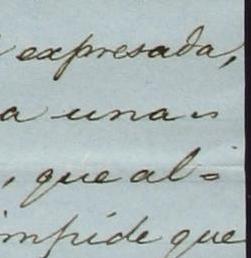 expresada,
a una
, que al=
impide que